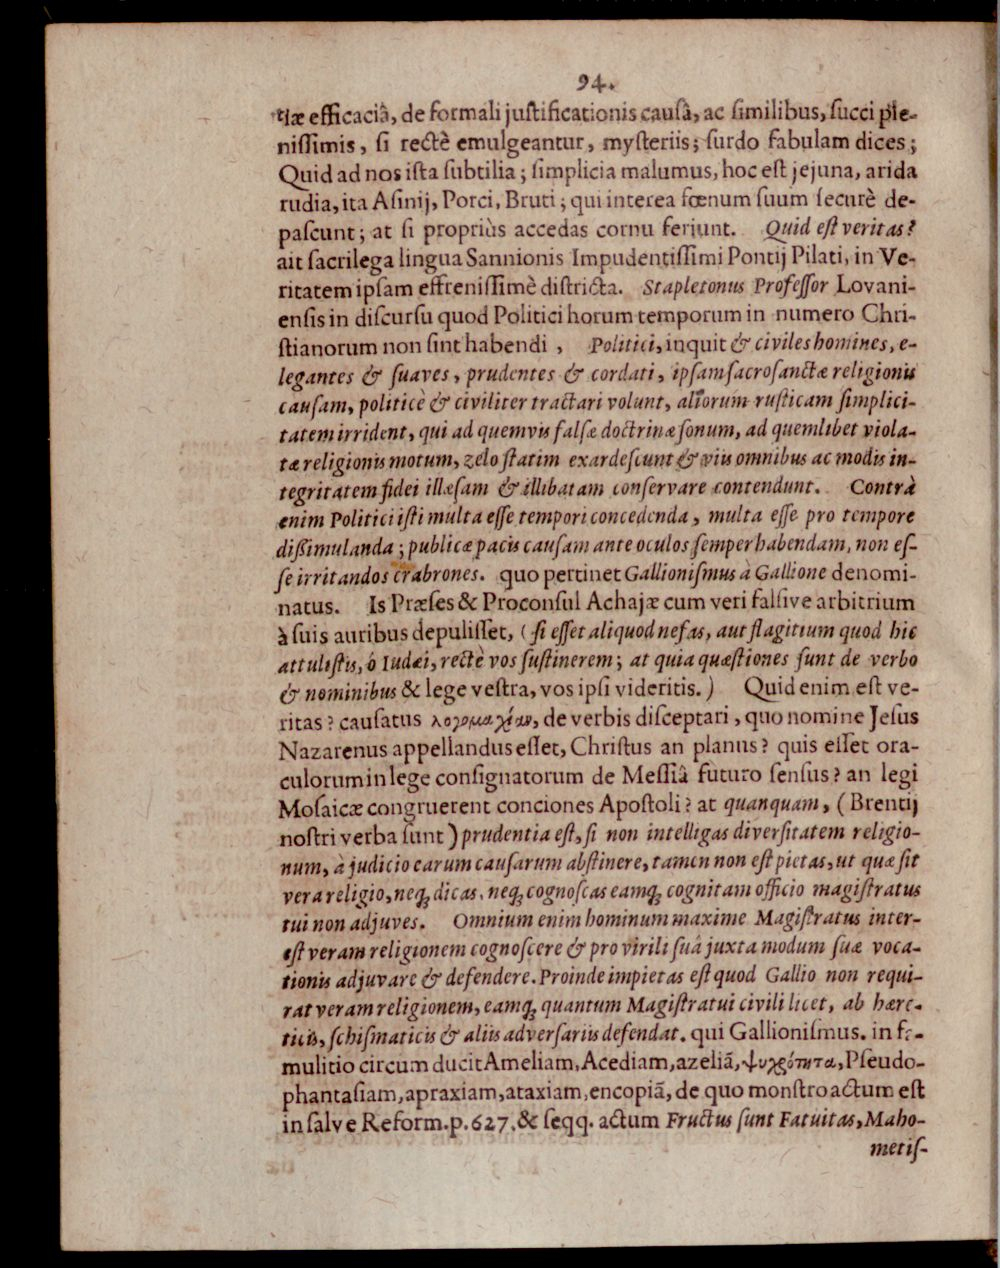 94.
tiæ efficaciâ, de formali justificationis causâ, ac similibus, succi ple-
nissimis, si rectè emulgeantur, mysteriis; surdo fabulam dices;
Quid ad nos ista subtilia; simplicia malumus, hoc est jejuna, arida
rudia, ita Asinij, Porci, Bruti; qui interea fœnum suum securè de-
pascunt; at si propriùs accedas cornu feriunt. Quid est veritas?
ait sacrilega lingua Sannionis Impudentissimi Pontij Pilati, in Ve-
ritatem ipsam effrenissimè districta. Stapletonus Professor Lovani-
ensis in discursu quod Politici horum temporum in numero Chri-
stianorum non sint habendi, Politici, inquit & civiles homines, e-
legantes & suaves, prudentes & cordati, ipsam sacrosanctæ religionis
causam, politicè & civiliter tractari volunt, aliorum rusticam simplici-
tatem irrident, qui ad quemvis falsæ doctrinæ sonum, ad quemlibet viola-
tæ religionis motum, zelo statim exardescunt & viis omnibus ac modis in-
tegritatem fidei illæsam & illibatam conservare contendunt. Contrà
enim Politici isti multa esse tempori concedenda, multa esse pro tempore
dissimulanda; publicæ pacis causam ante oculos semper habendam, non es-
se irritandos crabrones. quo pertinet Gallionismus à Gallione denomi-
natus. Is Præses & Proconsul Achajæ cum veri falsive arbitrium
à suis auribus depulisset, (si esset aliquod nefas, aut flagitium quod hic
attulistis, ô Iudæi, rectè vos sustinerem; at quia quæstiones sunt de verbo
& nominibus & lege vestra, vos ipsi videritis.) Quid enim est ve-
ritas? causatus λογομαχίαν, de verbis disceptari, quo nomine Jesus
Nazarenus appellandus esset, Christus an planus? quis esset ora-
culorum in lege consignatorum de Messiâ futuro sensus? an legi
Mosaicæ congruerent conciones Apostoli? at quanquam, (Brentij
nostri verba sunt) prudentia est, si non intelligas diversitatem religio-
num, à judicio earum causarum abstinere, tamen non est pietas, ut quæ sit
vera religio, neq; dicas, neq; cognoscas eamq; cognitam officio magistratus
tui non adjuves. Omnium enim hominum maxime Magistratus inter-
est veram religionem cognoscere & pro virili suâ juxta modum suæ voca-
tionis adjuvare & defendere. Proinde impietas est quod Gallio non requi-
rat veram religionem, eamq; quantum Magistratui civili licet, ab hære-
ticis, schismaticis & aliis adversariis defendat. qui Gallionismus. in fa-
mulitio circum ducit Ameliam, Acediam, azeliã, ψυχρότητα, Pseudo-
phantasiam, apraxiam, ataxiam, encopiã, de quo monstro actum est
in salve Reform. p. 627. & seqq. actum Fructus sunt Fatuitas, Maho-
metis-